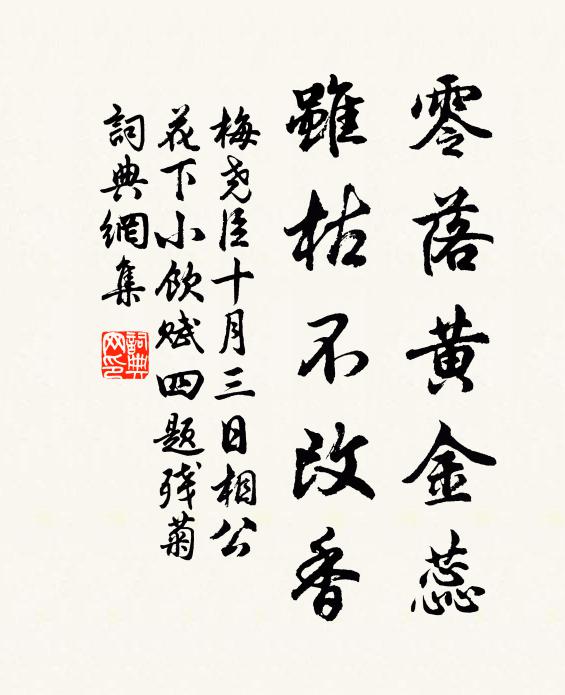 零落黄金蕊
雖枯不改香
梅堯臣十月三日相公
花下小飲賦四題殘菊
詞典網集
詞典网印